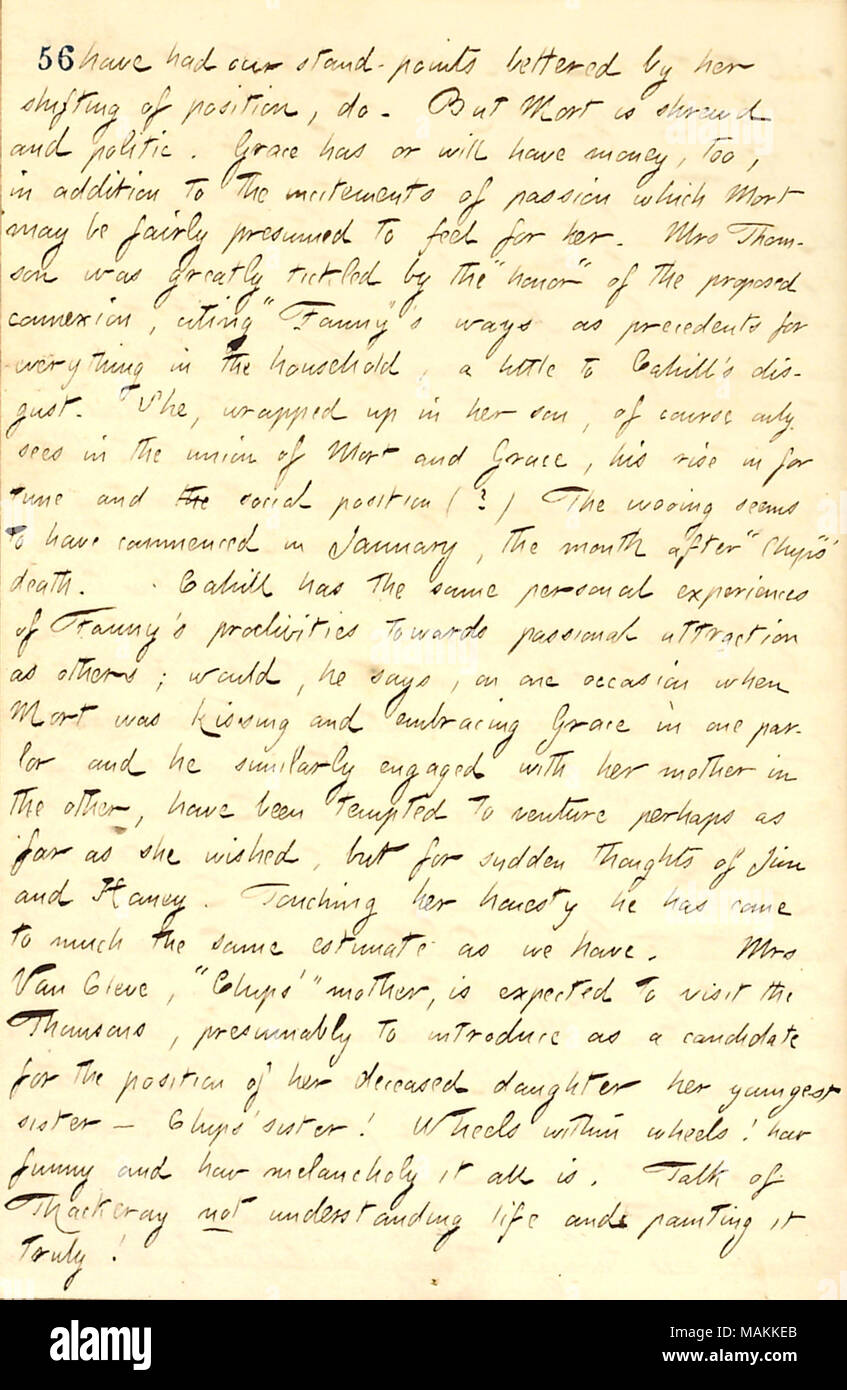 56 have had our stand-points bettered by her
shifting of position, do. But Mort is shrewd
and politic. Grace has or will have money, too,
in addition to the incitements of passion which Mort
may be fairly presumed to feel for her. Mrs Thom-
son was greatly tickled by the "honor" of the proposed
connexion, citing "Fanny"'s ways as precedents for
everything in the household, a little to Cahill's dis-
gust. She, wrapped up in her son, of course only
sees in the union of Mort and Grace, his rise in for
tune and the social position (?) The wooing seems
to have commenced in January, the month after "Chips"'
death. Cahill has the same personal experiences
of Fanny's proclivities towards passional attraction
as others; would, he says, on one occasion when
Mort was kissing and embracing Grace in one par-
lor and he similarly engaged with her mother in
the other, have been tempted to venture perhaps as
far as she wished, but for sudden thoughts of Jim
and Haney. Touching her honesty he has come
to much the same estimate as we have. Mrs
Van Cleve, "Chips'" mother, is expected to visit the
Thomsons, presumably to introduce as a candidate
for the position of her deceased daughter her youngest
sister — Chips' sister! Wheels within wheels! how
funny and how melancholy it all is. Talk of
Thackeray not understanding life and painting it
truly!
alamy
Image ID: MAKKEB
www.alamy.com